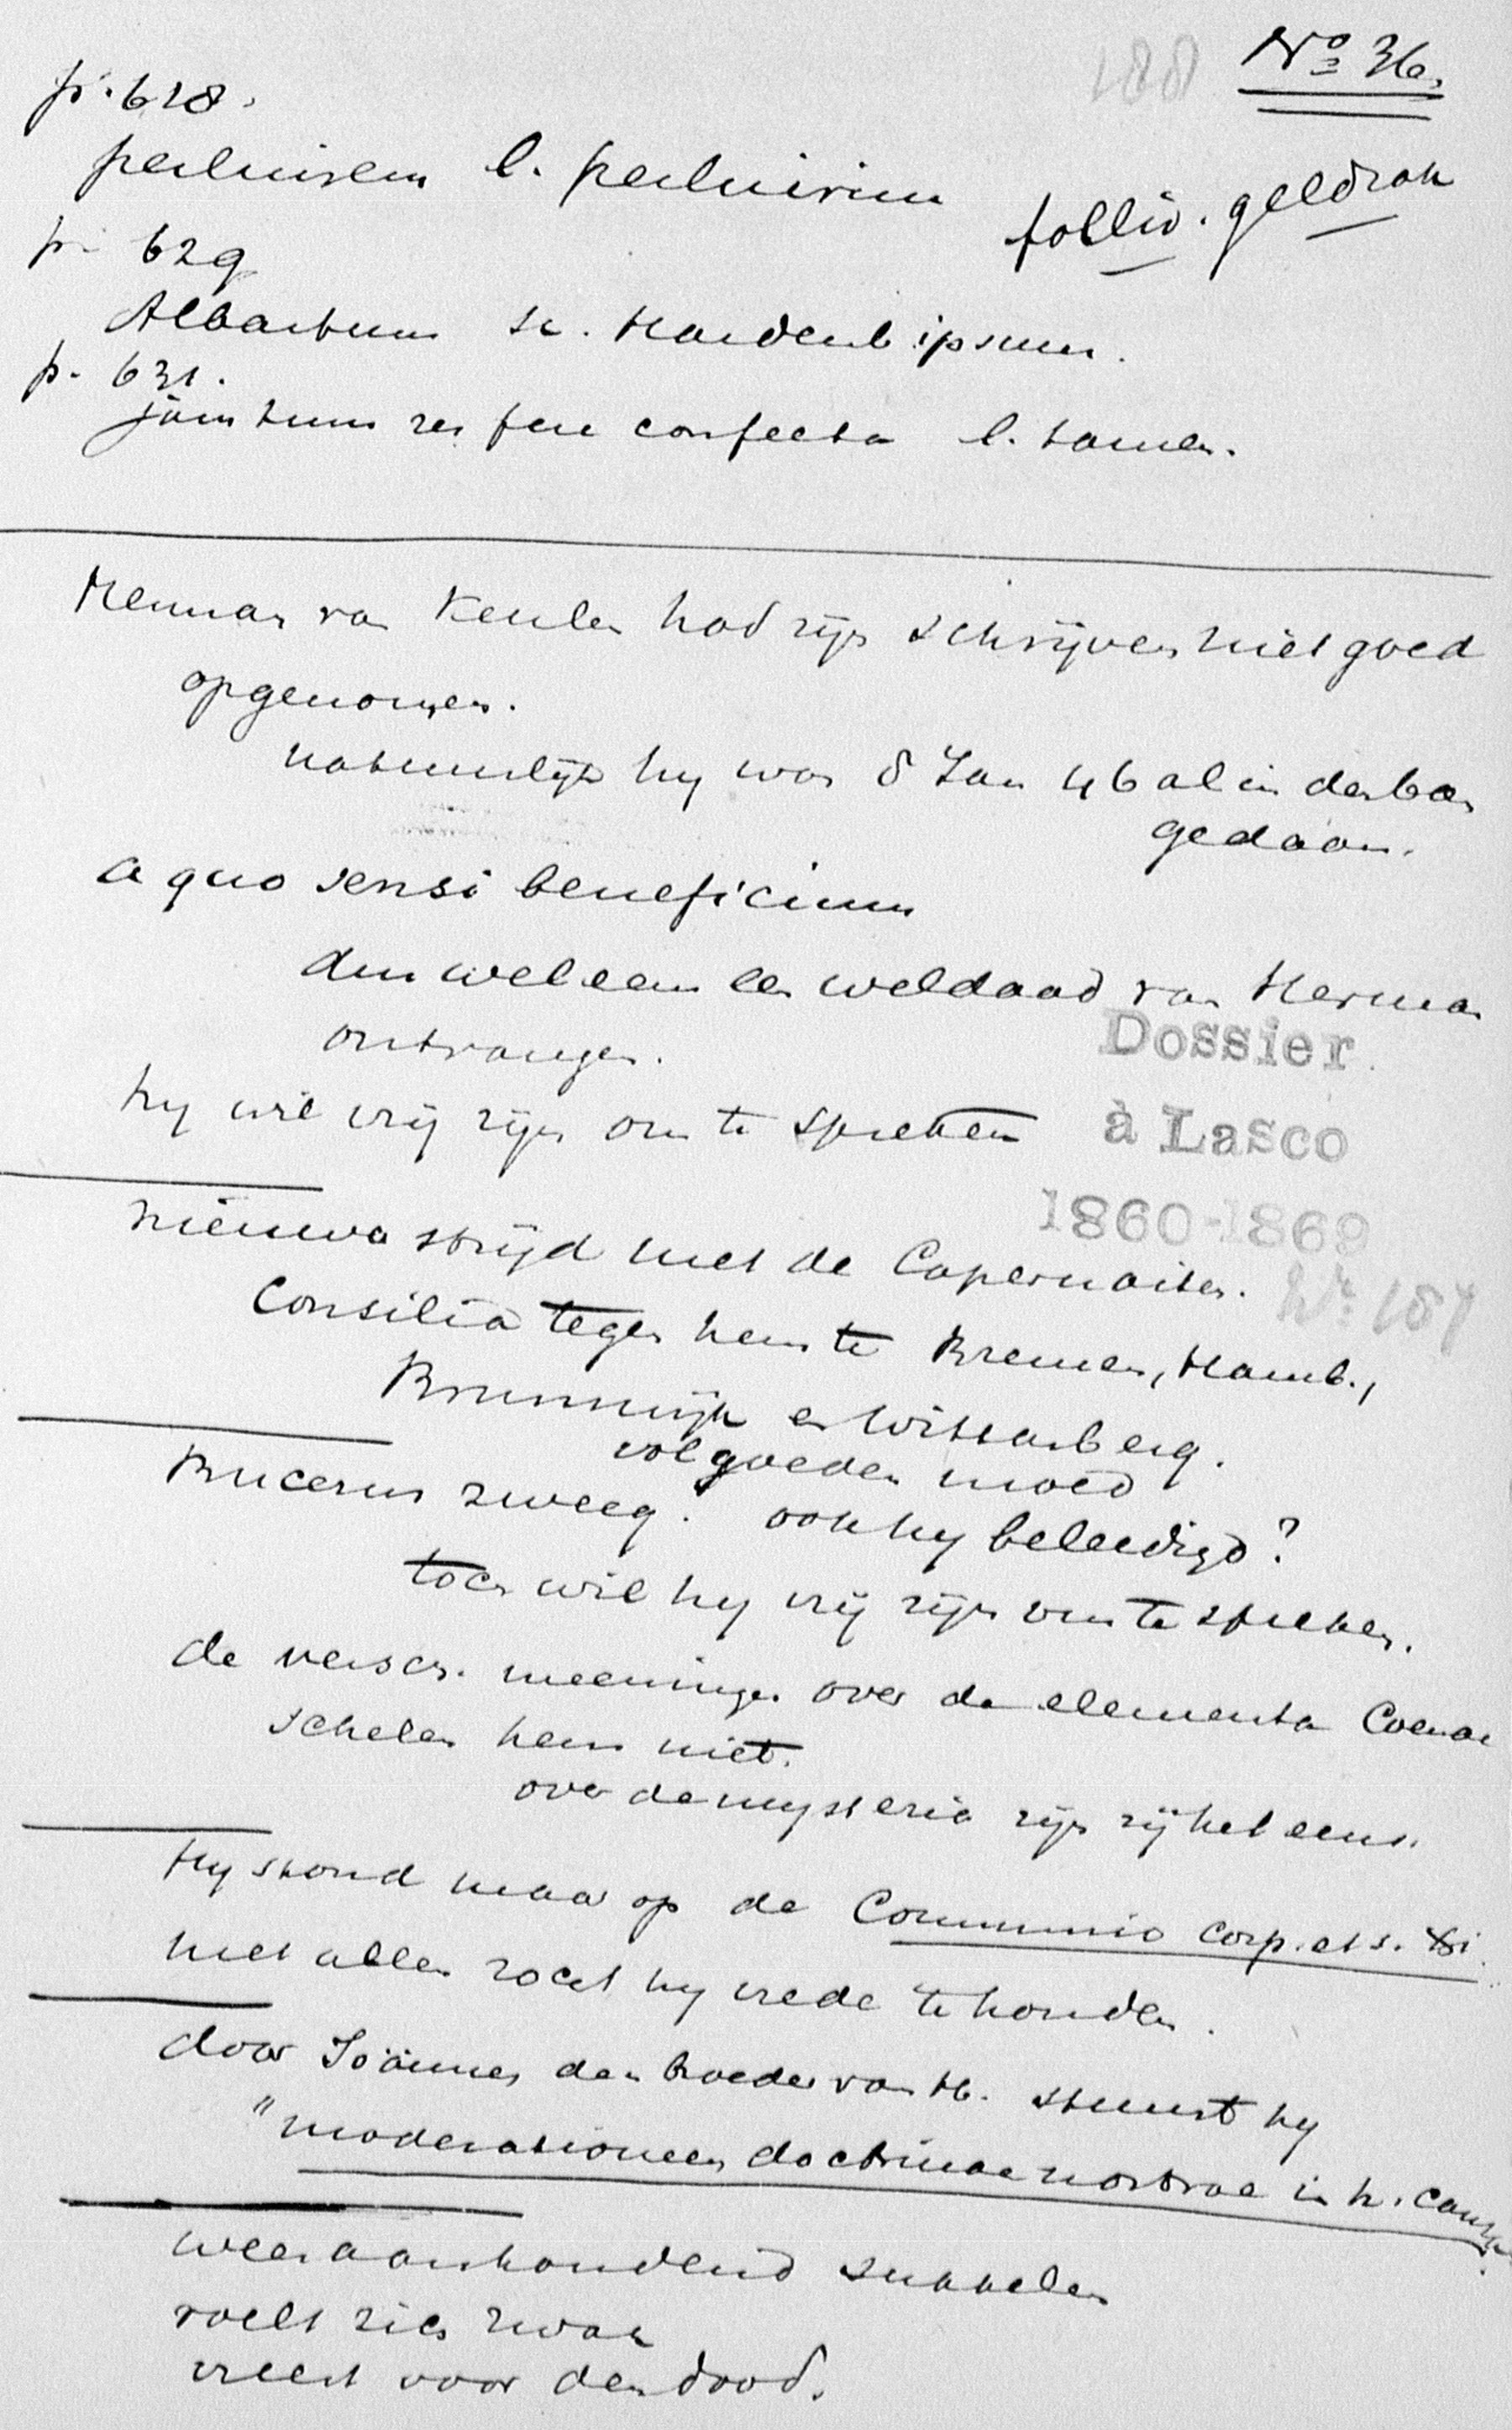 188 No 36.
p. 628.
perluisem l. perluirim
folliv. geldrok
p. 629
Albartum sc. Hardenb ipsum.
p. 631.
jam tum res fere confecta l. tamen.
Herman van Keulen had zijn schrijven niet goed
opgenomen.
natuurlijk hy was 8 Jan 46 al in den ban
gedaan.
a quo sensi beneficium
dus wel eens een weldaad van Herman
ontvangen.
hy wil vrij zijn om te spreken
Dossier
à Lasco
1860-1869
No 187
nieuwe strijd met de Capernaiten.
Consilia tegen hem te Bremen, Hamb.,
Brunswijk en Wittenberg.
vol goeden moed
Bucerus zweeg. ook hy beleedigd?
toch wil hy vrij zijn om te spreken.
de versch. meeningen over de elementa Coenae
schelen hem niet.
over de mysteria zijn zij het eens.
Hy stond maar op de Communio corp. et s. Xti.
met allen zoekt hy vrede te houden.
door Joannes den broeder van H. stuurt hy
"moderationem doctrinae nostrae in h. causa
weer aanhoudend sukkelen
voelt zich zwak
vreest voor den dood.